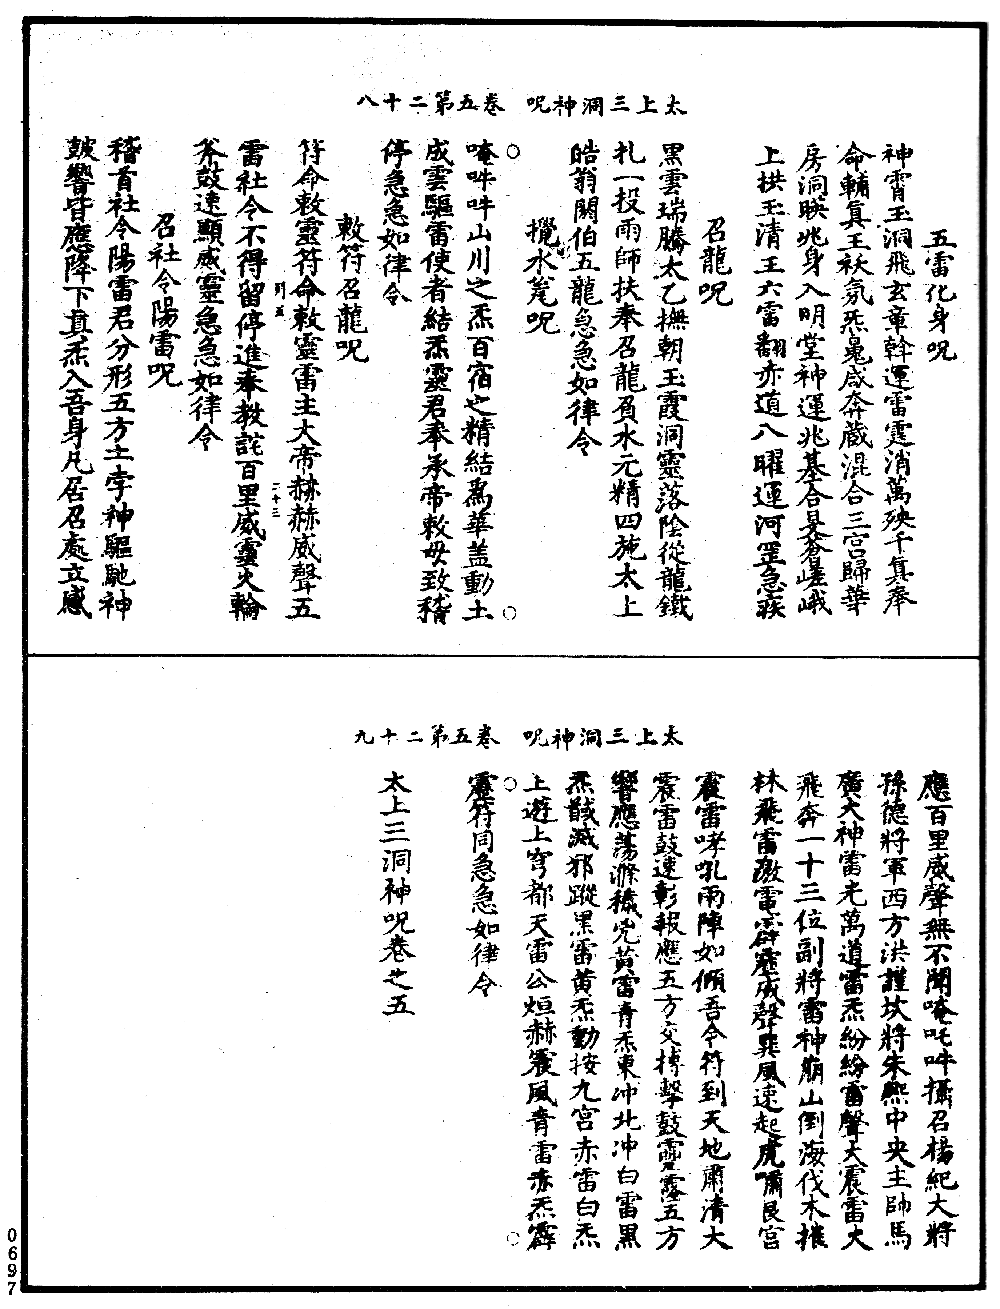 太上三洞神呪　卷五第二十八
五雷化身呪
神霄玉洞飛玄章斡運雷霆消萬殃千真奉
命輔真王袄氛炁鬼咸奔藏混合三宮歸華
房洞暎兆身入明堂神運兆基合旻蒼嵯峨
上拱玉清王六雷翻亦道八曜運河罡急疾
召龍呪
黑雲瑞騰太乙撫朝玉霞洞靈落陰從龍鐵
札一投雨師扶奉召龍負水元精四施太上
皓翁關伯五龍急急如律令
攪水篼呪
唵吽吽山川之炁百宿之精結爲華蓋動土
成雲驅雷使者結炁靈君奉承帝敕毋致稽
停急急如律令
敕符召龍呪
符命敕靈符命敕靈雷主大帝赫赫威聲五
雷社令不得留停進奉教詫百里威靈火輪
斧鼓速顯威靈急急如律令
召社令陽雷呪
稽首社令陽雷君分形五方土孛神驅馳神
鼓響皆應降下真炁入吾身凡居召處立感
太上三洞神呪　卷五第二十九
應百里威聲無不聞唵吒吽攝召楊紀大將
孫德將軍西方洪謹坎將朱熙中央主帥馬
廣大神雷光萬道雷炁紛紛雷聲大震雷火
飛奔一十三位副將雷神崩山倒海伐木摧
林飛雷激電霹靂威聲巽風速起虎嘯艮宮
震雷哮吼雨陣如傾吾令符到天地肅清大
震雷鼓速彰報應五方交搏擊鼓靈霳五方
響應蕩滌穢兇黃雷青炁東冲北冲白雷黑
炁馘滅邪蹤黑雷黃炁動按九宮赤雷白炁
上遊上穹都天雷公烜赫震風青雷赤炁霹
靂符同急急如律令
太上三洞神呪卷之五
0697